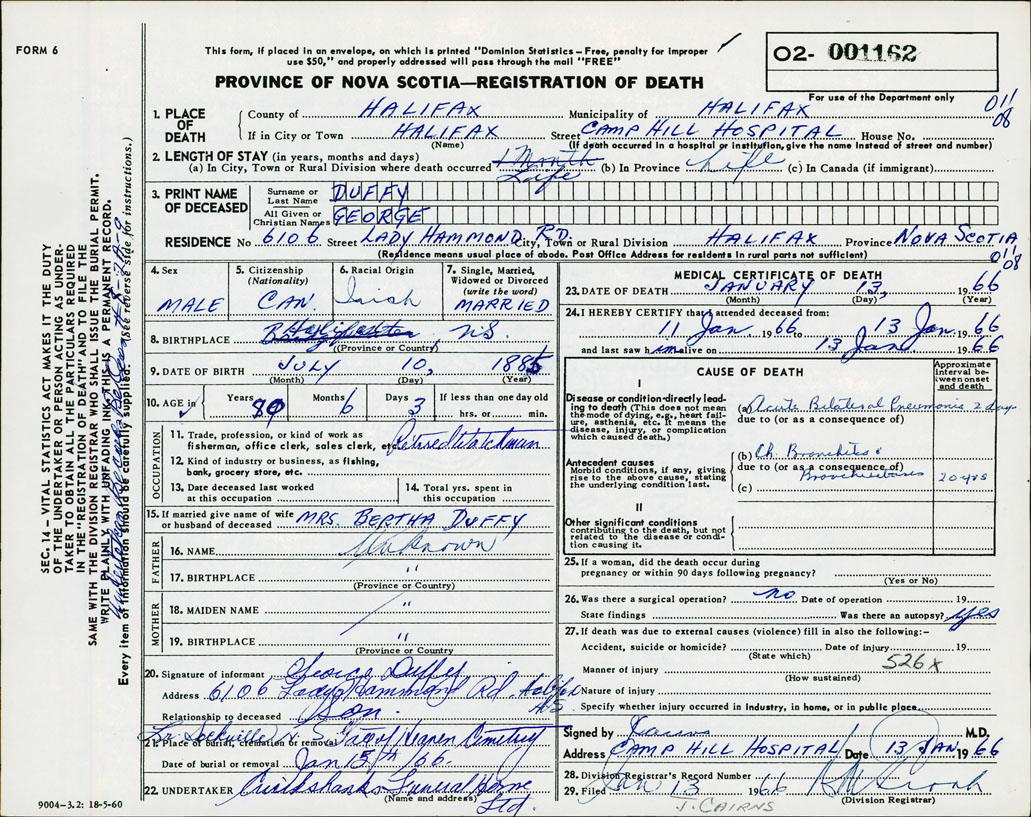 FORM 6
This form, if placed in an envelope, on which is printed "Dominion Statistics – Free, penalty for improper
use $50," and properly addressed will pass through the mail "FREE"
02- 001162
PROVINCE OF NOVA SCOTIA—REGISTRATION OF DEATH
For use of the Department only
011
08
1. PLACE OF DEATH
County of HALIFAX Municipality of HALIFAX
If in City or Town HALIFAX Street CAMP HILL HOSPITAL House No.
(Name) (If death occurred in a hospital or institution, give the name instead of street and number)
2. LENGTH OF STAY (in years, months and days)
(a) In City, Town or Rural Division where death occurred 1 Month Life (b) In Province Life (c) In Canada (if immigrant)
3. PRINT NAME OF DECEASED
Surname or Last Name DUFFY
All Given or Christian Names GEORGE
RESIDENCE No. 6106 Street LADY HAMMOND RD. City, Town or Rural Division HALIFAX Province NOVA SCOTIA
(Residence means usual place of abode. Post Office Address for residents in rural parts not sufficient)
011
08
4. Sex
MALE
5. Citizenship
(Nationality)
CAN.
6. Racial Origin
Irish
7. Single, Married, Widowed or Divorced
(write the word)
MARRIED
8. BIRTHPLACE N.S.
(Province or Country)
9. DATE OF BIRTH JULY 10, 1885
(Month) (Day) (Year)
10. AGE in Years 80 Months 6 Days 3 If less than one day old
hrs. or min.
OCCUPATION
11. Trade, profession, or kind of work as
fisherman, office clerk, sales clerk, etc. Retired Watchman
12. Kind of industry or business, as fishing,
bank, grocery store, etc.
13. Date deceased last worked
at this occupation
14. Total yrs. spent in
this occupation
15. If married give name of wife
or husband of deceased MRS. BERTHA DUFFY
FATHER
16. NAME Unknown
17. BIRTHPLACE "
(Province or Country)
MOTHER
18. MAIDEN NAME "
19. BIRTHPLACE "
(Province or Country)
20. Signature of informant George Duffy
Address 6106 Lady Hammond Rd. Halifax N.S.
Relationship to deceased Son.
Lr. Sackville N.S.
21. Place of burial, cremation or removal Haven Cemetery
Date of burial or removal Jan 15th/66.
22. UNDERTAKER Cruikshanks Funeral Home Ltd.
(Name and address)
9004–3.2: 18-5-60
MEDICAL CERTIFICATE OF DEATH
23. DATE OF DEATH JANUARY 13, 1966
(Month) (Day)
24. I HEREBY CERTIFY that I attended deceased from:
11 Jan 1966 to 13 Jan. 1966
and last saw him alive on 13 Jan 1966
CAUSE OF DEATH
Approximate interval between onset and death
I
Disease or condition directly leading to death (This does not mean the mode of dying, e.g., heart failure, asthenia, etc. It means the disease, injury, or complication which caused death.)
(a) Acute Bilateral Pneumonia 2 days
due to (or as a consequence of)
Antecedent causes
Morbid conditions, if any, giving rise to the above cause, stating the underlying condition last.
(b) Ch. Bronchitis &
due to (or as a consequence of)
Bronchiectasis 20 yrs
(c)
II
Other significant conditions
contributing to the death, but not related to the disease or condition causing it.
25. If a woman, did the death occur during
pregnancy or within 90 days following pregnancy?
(Yes or No)
26. Was there a surgical operation? no Date of operation 19
State findings Was there an autopsy? yes
27. If death was due to external causes (violence) fill in also the following:–
Accident, suicide or homicide? Date of injury 19
(State which)
526x
Manner of injury
(How sustained)
Nature of injury
Specify whether injury occurred in industry, in home, or in public place
Signed by J Cairns M.D.
Address CAMP HILL HOSPITAL Date 13 JAN 1966
28. Division Registrar's Record Number
29. Filed Jan 13 1966
(Division Registrar)
J. CAIRNS
SEC. 14 – VITAL STATISTICS ACT MAKES IT THE DUTY
OF THE UNDERTAKER OR PERSON ACTING AS UNDER-
TAKER TO OBTAIN ALL THE PARTICULARS REQUIRED
IN THE "REGISTRATION OF DEATH" AND TO FILE THE
SAME WITH THE DIVISION REGISTRAR WHO SHALL ISSUE THE BURIAL PERMIT.
WRITE PLAINLY, WITH UNFADING INK. THIS IS A PERMANENT RECORD.
Every item of information should be carefully supplied. (See reverse side for instructions.)